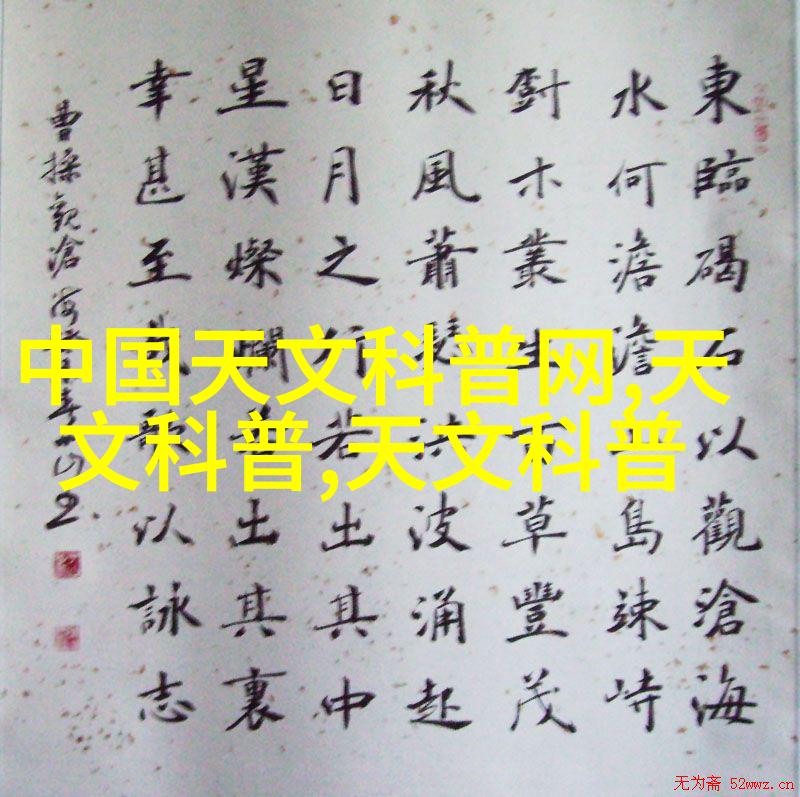 東臨碣石以觀滄海
水何澹澹島竦峙
樹木叢生百草豐茂
秋風蕭瑟洪波涌起
日月之行若出其中
星漢燦爛若出其裏
幸甚至哉歌以詠志
曹操觀滄海
中国天文科普网,天
文科普,天文科普
无为斋 52wwz.cn